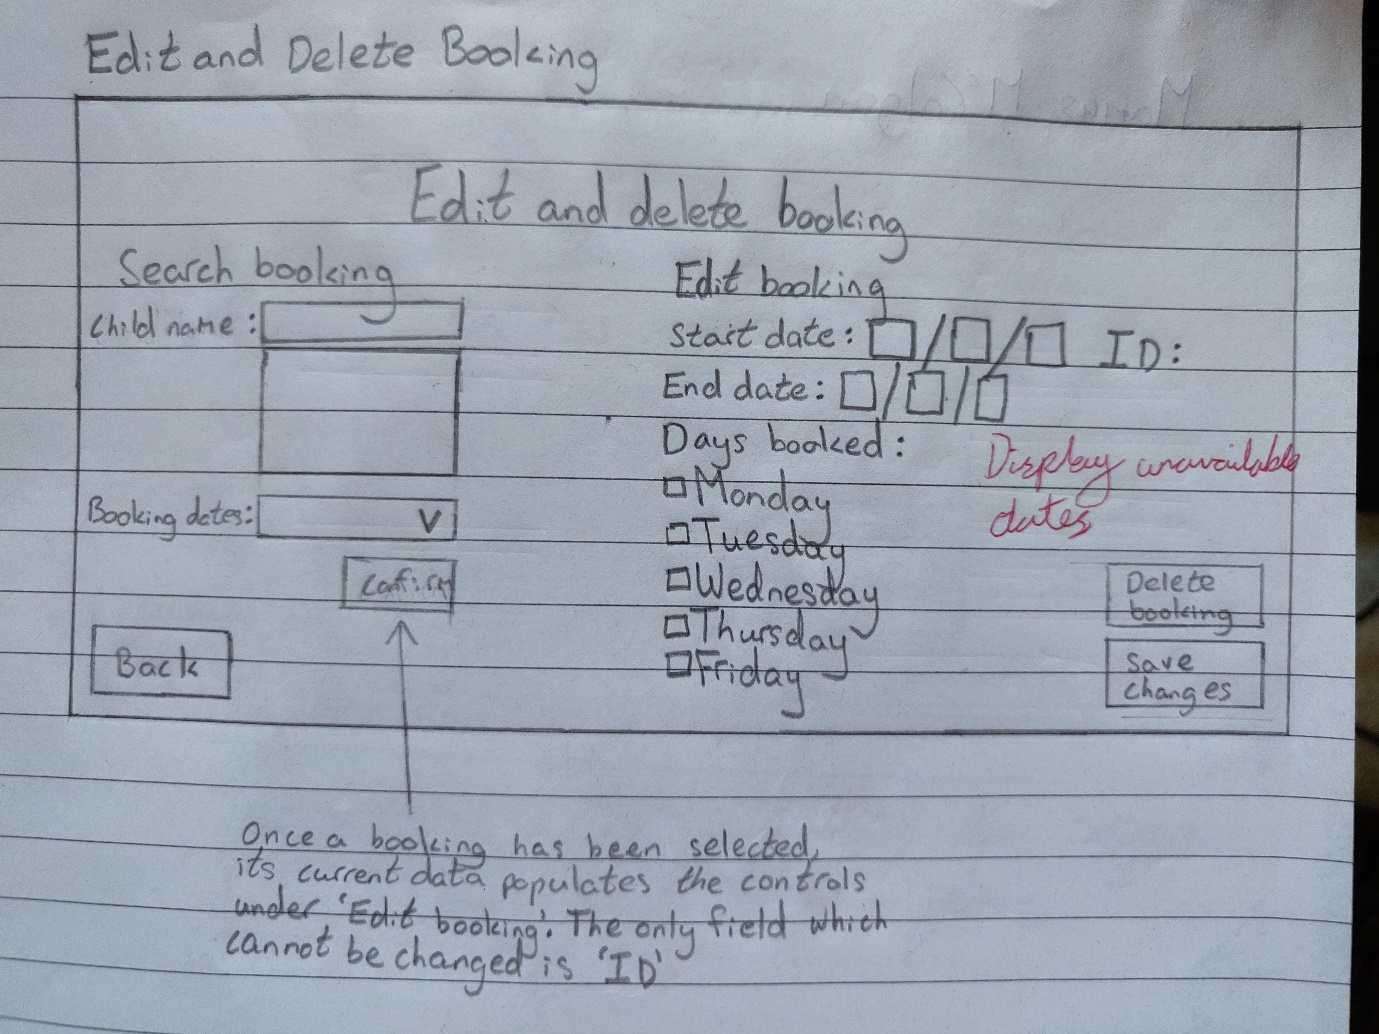 Edit and Delete Booking
Edit and delete booking
Search booking
Child name:
Booking dates: V
Confirm
Back
Edit booking
Start date: / / ID:
End date: / /
Days booked:
Monday
Tuesday
Wednesday
Thursday
Friday
Display unavailable
dates
Delete
booking
Save
changes
Once a booking has been selected,
its current data populates the controls
under 'Edit booking'. The only field which
cannot be changed is 'ID'